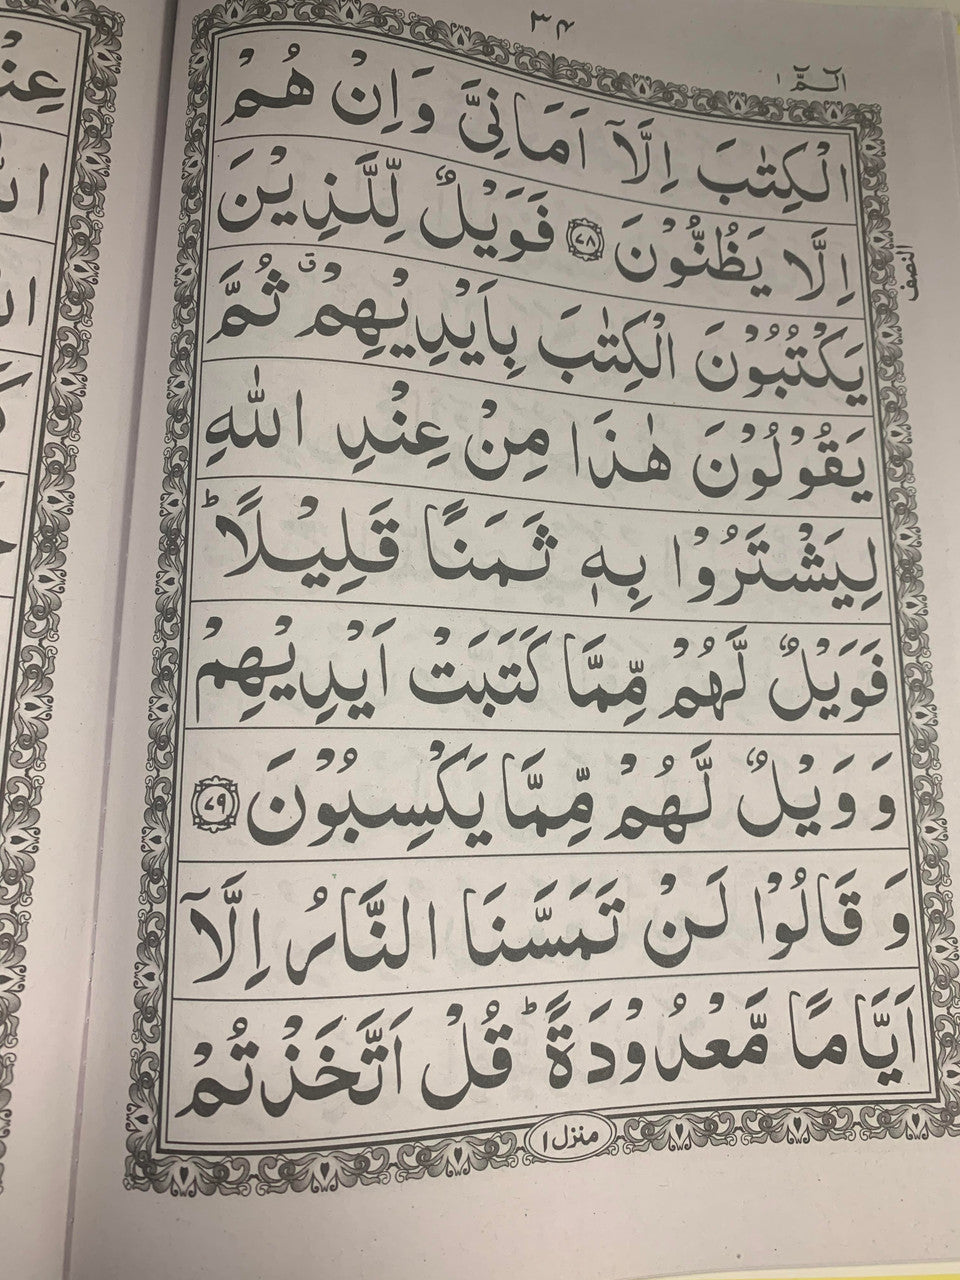 ٣٤
الٓمّٓ ١
الْكِتٰبَ اِلَّاۤ اَمَانِیَّ وَاِنْ هُمْ
اِلَّا یَظُنُّوْنَ ﴿٧٨﴾ فَوَیْلٌ لِّلَّذِیْنَ
النصف
یَكْتُبُوْنَ الْكِتٰبَ بِاَیْدِیْهِمْ ۗ ثُمَّ
یَقُوْلُوْنَ هٰذَا مِنْ عِنْدِ اللّٰهِ
لِیَشْتَرُوْا بِهٖ ثَمَنًا قَلِیْلًا ؕ
فَوَیْلٌ لَّهُمْ مِّمَّا كَتَبَتْ اَیْدِیْهِمْ
وَ وَیْلٌ لَّهُمْ مِّمَّا یَكْسِبُوْنَ ﴿٧٩﴾
وَ قَالُوْا لَنْ تَمَسَّنَا النَّارُ اِلَّاۤ
اَیَّامًا مَّعْدُوْدَةً ؕ قُلْ اَتَّخَذْتُمْ
منزل ١